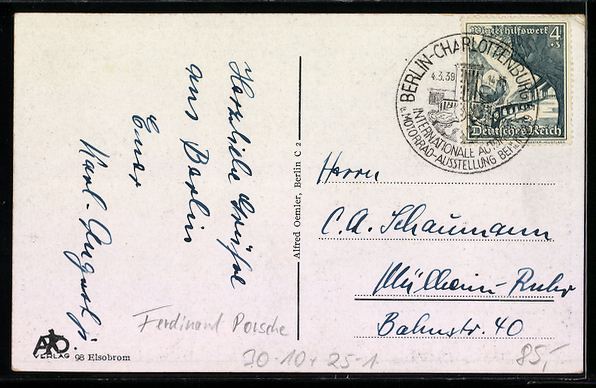 Herzliche Grüße
aus Berlin
Euer
Karl-August jr.
Alfred Oemler, Berlin C 2
Winterhilfswerk 4
+3
Deutsches Reich
BERLIN-CHARLOTTENBURG
4.3.39
INTERNATIONALE AUTO
u. MOTORRAD-AUSSTELLUNG BERLIN
Herrn
C.A. Schaumann
Mülheim-Ruhr
Bahnstr. 40
Ferdinand Porsche
70-10+25-1
85,-
AO
VERLAG 98 Elsobrom